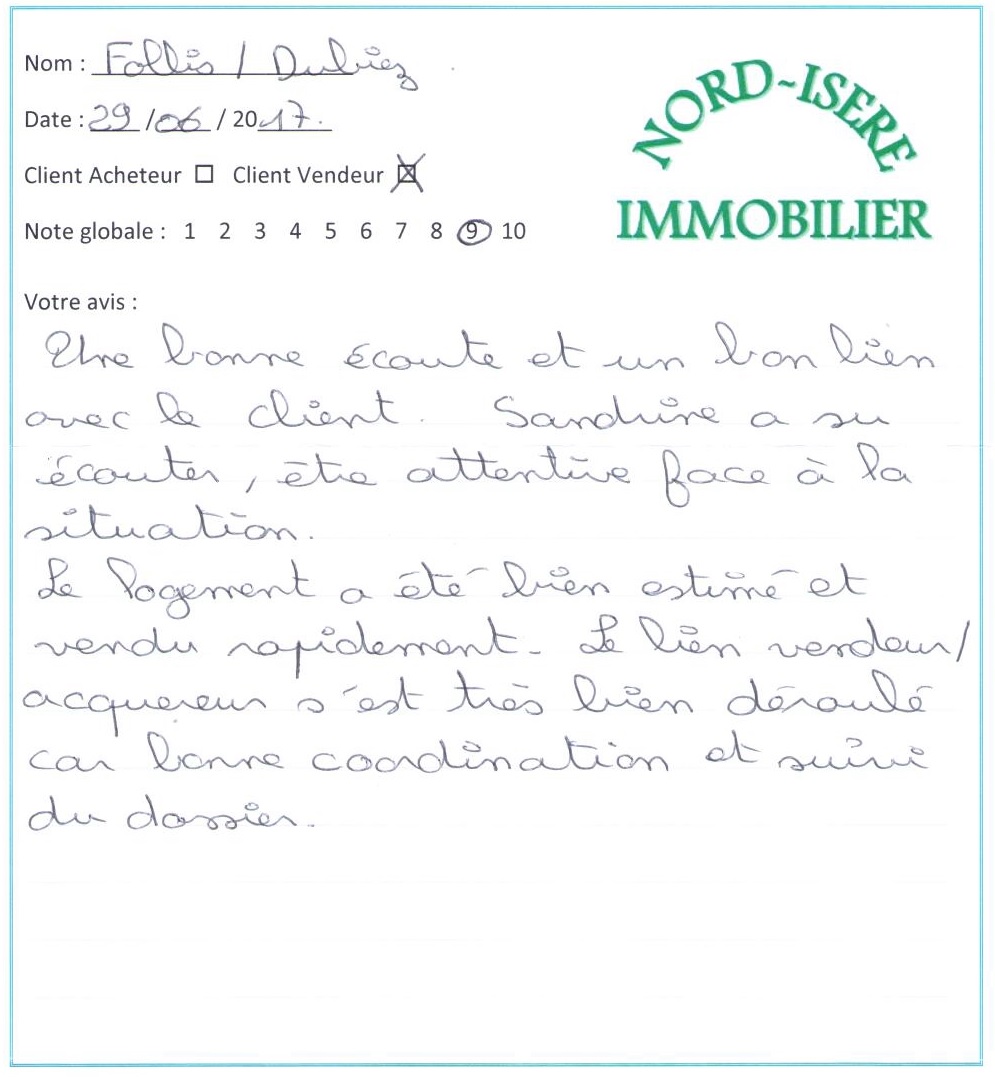 Nom : Follis / Dubiez
Date : 29 /06 / 2017.
Client Acheteur ☐ Client Vendeur ☒
Note globale : 1 2 3 4 5 6 7 8 9 10
NORD-ISERE
IMMOBILIER
Votre avis :
Une bonne écoute et un bon lien
avec le client. Sandrine a su
écouter, être attentive face à la
situation.
Le logement a été bien estimé et
vendu rapidement. Le lien vendeur/
acquereur s'est très bien déroulé
car bonne coordination et suivi
du dossier.